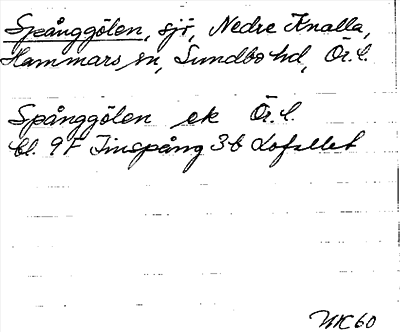 Spånggölen, sjö, Nedre Knalla,
Hammars sn, Sundbo hd, Ör. l.
Spånggölen ek Ör. l.
bl. 9 F Finspång 3 b Lofallet
NK 60